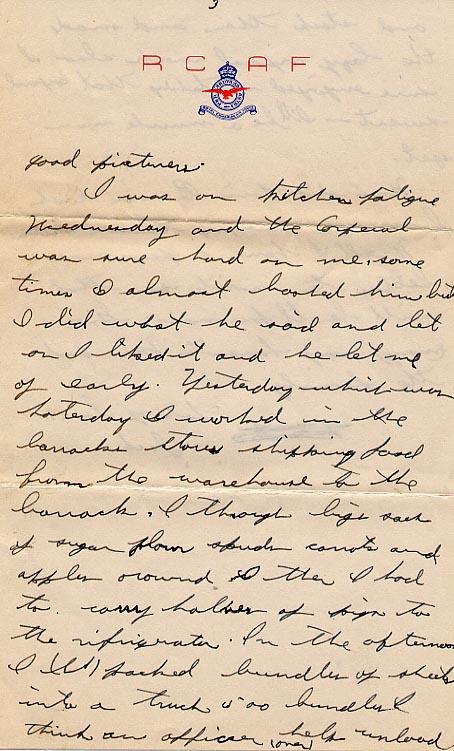 3
RCAF
good pictures.
I was on kitchen fatigue
Wednesday and the Corperal
was sure hard on me, some
times I almost boated him but
I did what he said and let
on I liked it and he let me
of early. Yesterday which was
Saterday I worked in the
barracks stores shipping food
from the warehouse to the
barrack. I though big sack
of sugar flour spuds carrots and
apples around & then I had
to carry halves of pigs to
the rifrigrator. In the afternoon
I packed bundles of sheets
into a truck 500 bundles I
think an officer (over) help unload